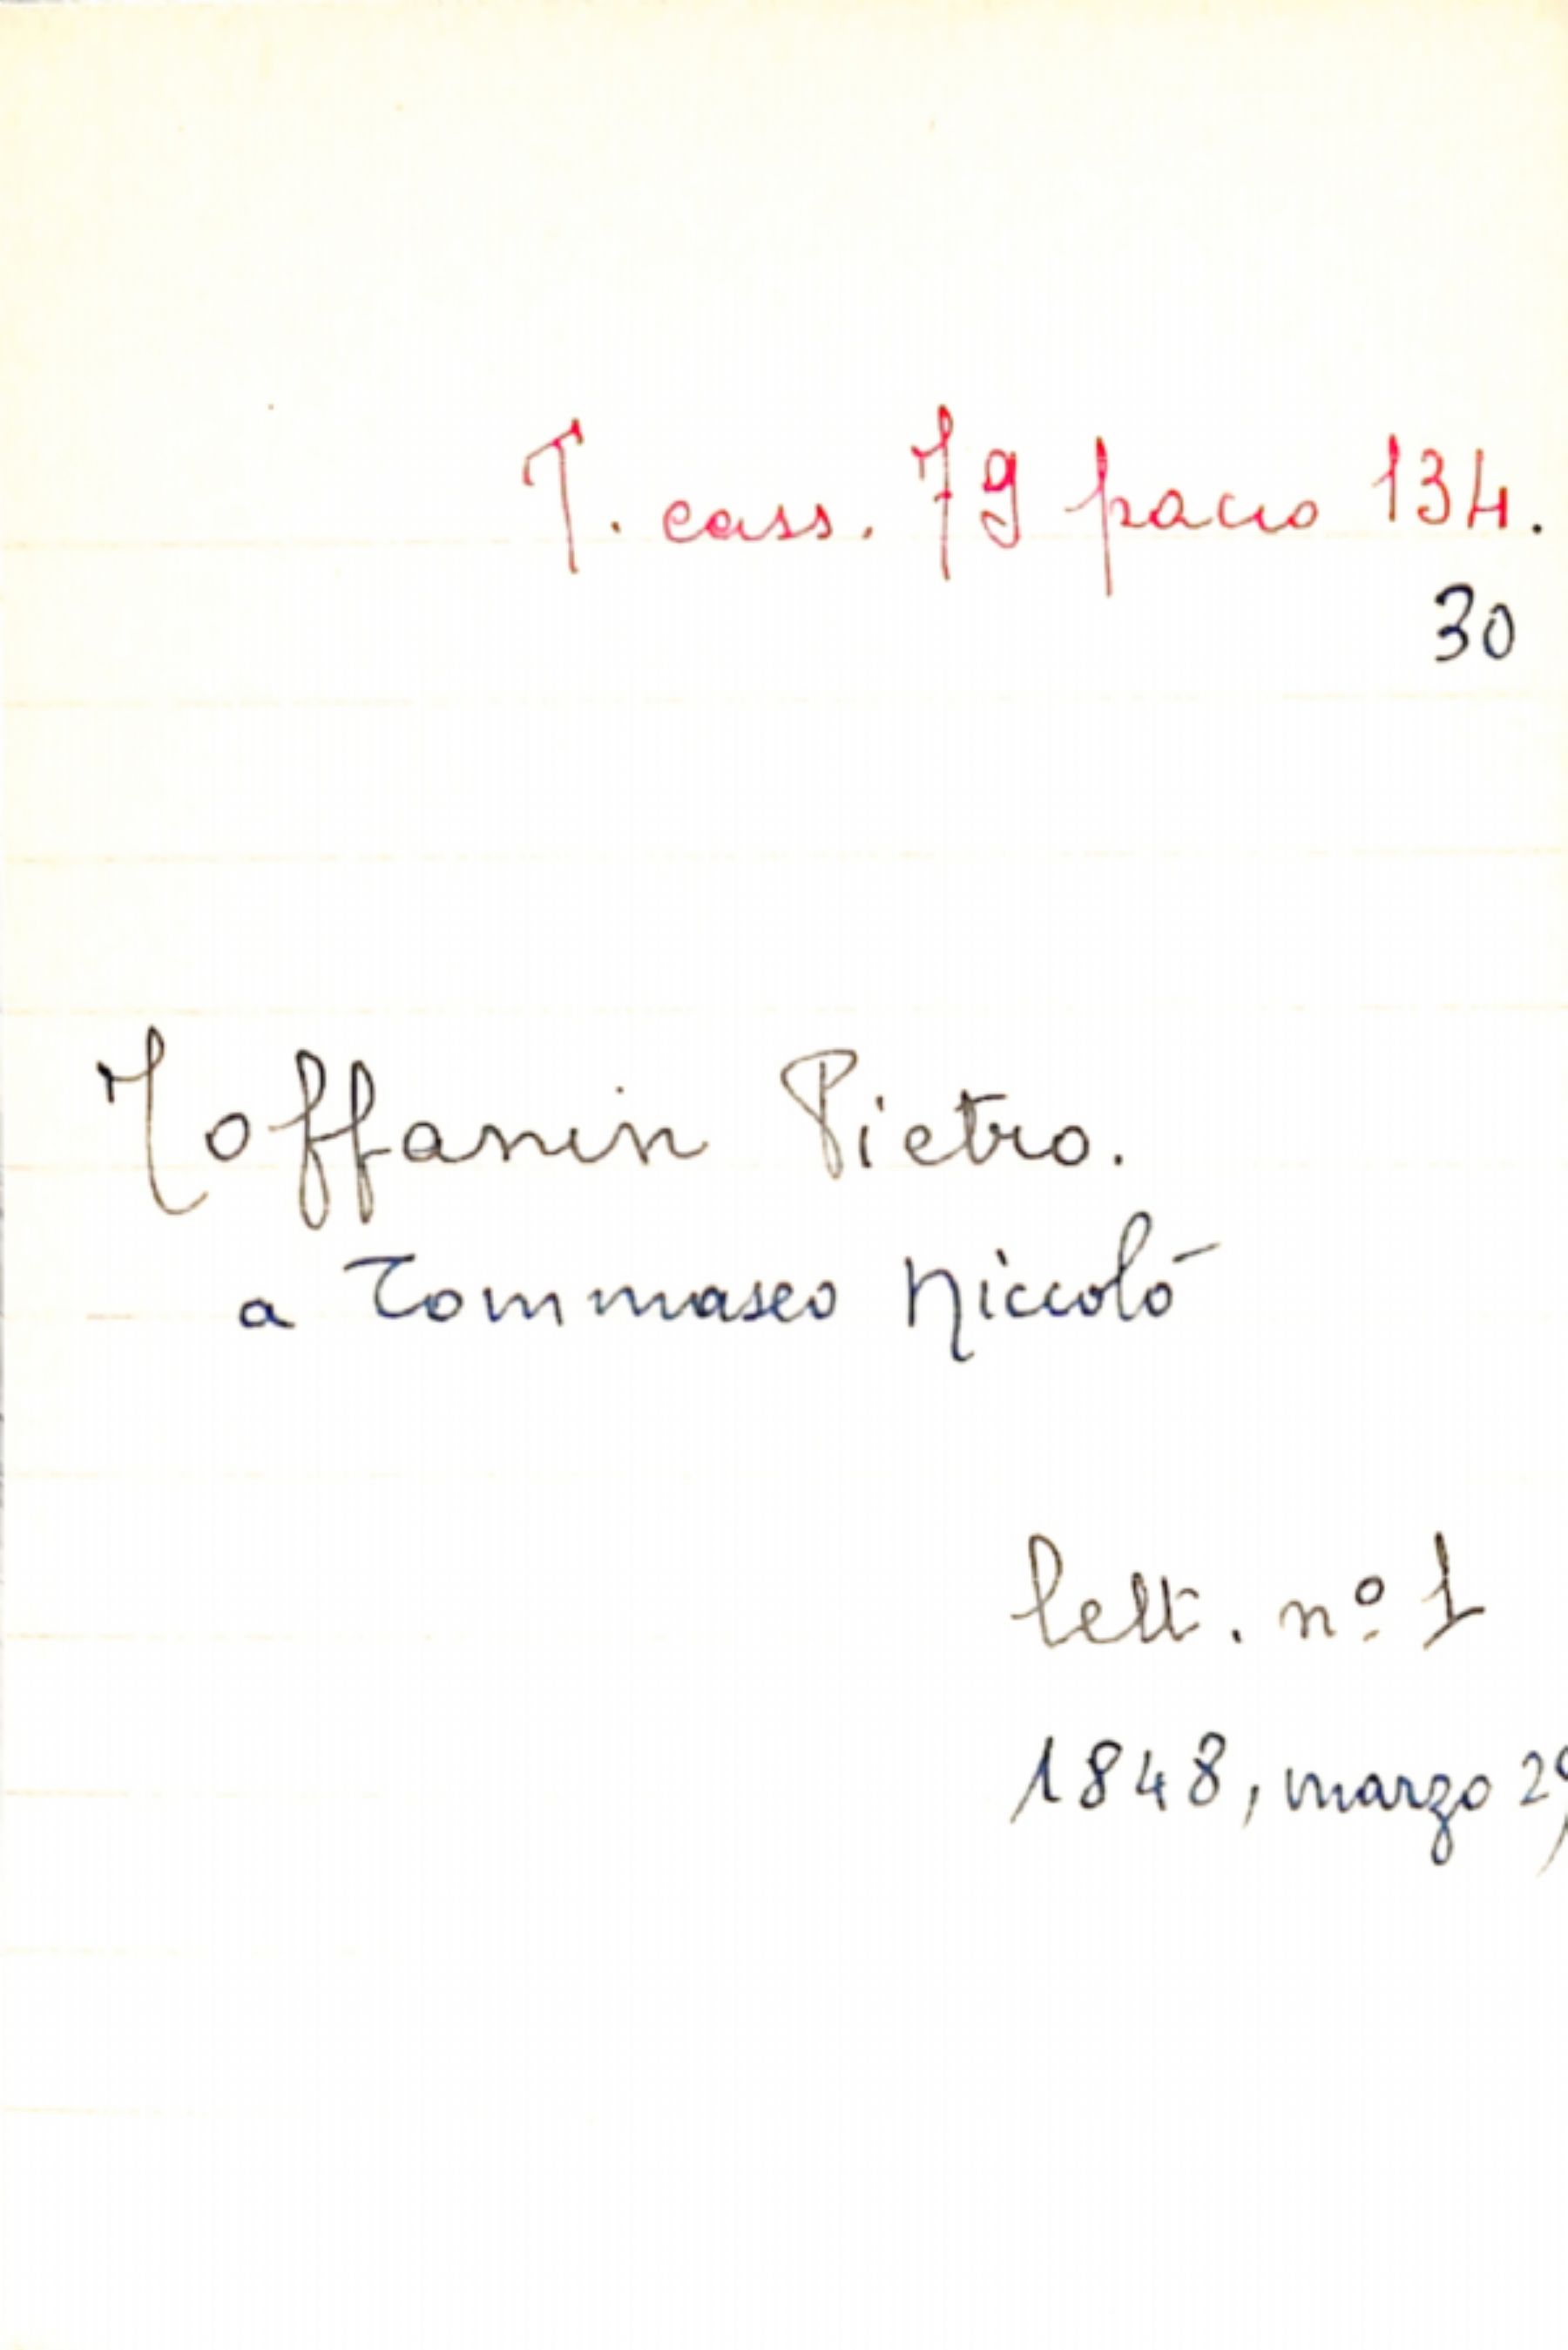 T. cass. 79 pacco 134.
30
Toffanin Pietro.
a Tommaseo Niccolò
lett. nº 1
1848, marzo 29